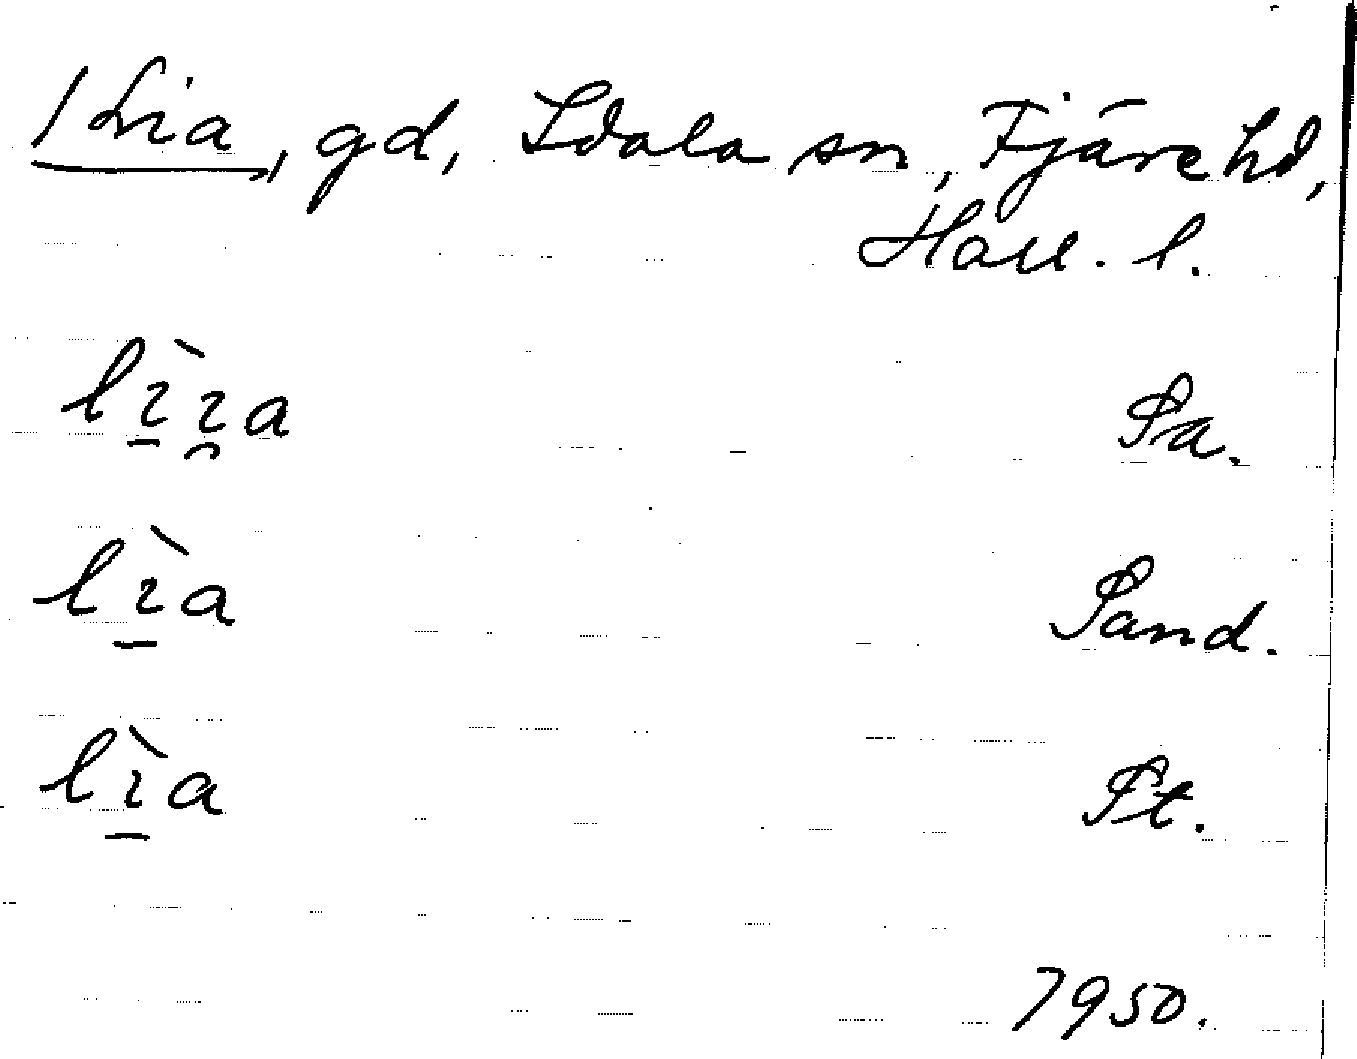 /Lia, gd, Idala sn, Fjäre hd,
Hall. l.
lɩ̠̀ɩ̯a Sa.
lɩ̠̀a Sand.
lɩ̠̀a St.
7950.